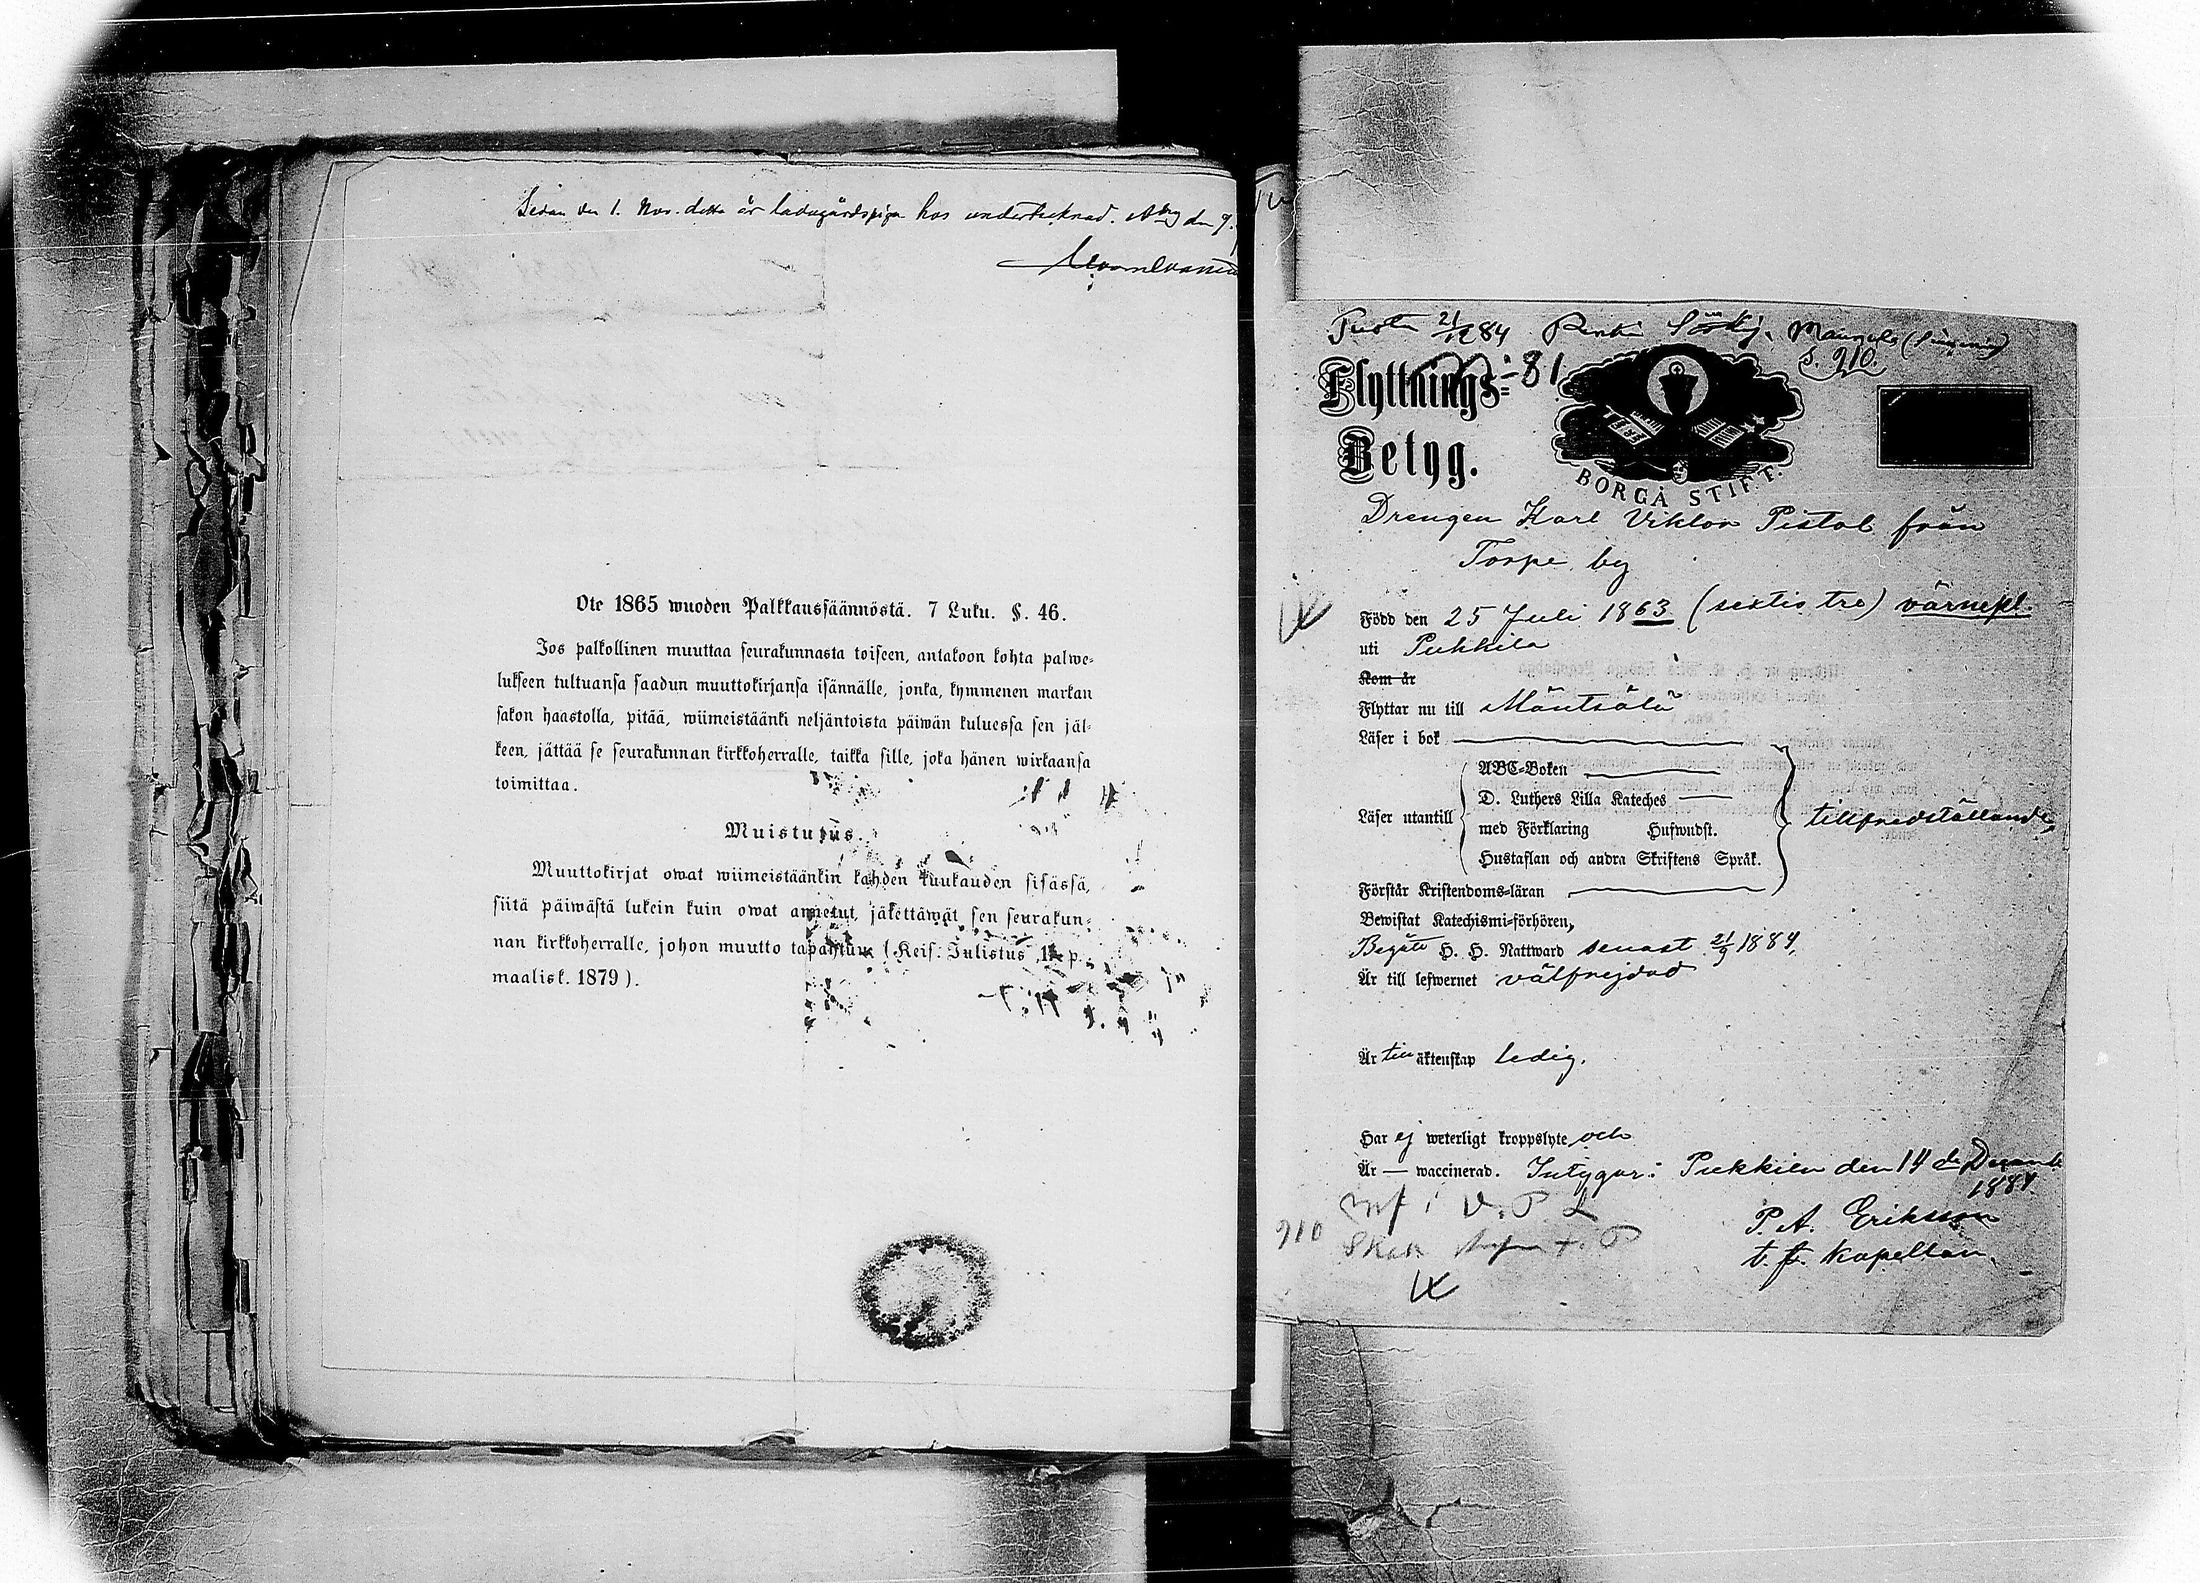 Sedan den 1. Nov. detta år ladugårdspiga hos undertecknad. den 9.
Ote 1865 wuoden Palkkaussäännöstä. 7 Luku. §. 46.
Jos palkollinen muuttaa seurakunnasta toiseen, antakoon kohta palwe-
lukseen tultuansa saadun muuttokirjansa isännälle, jonka, kymmenen markan
sakon haastolla, pitää, wiimeistäänki neljäntoista päiwän kuluessa sen jäl-
keen, jättää se seurakunnan kirkkoherralle, taikka sille, joka hänen wirkaansa
toimittaa.
Muistutus.
Muuttokirjat owat wiimeistäänkin kahden kuukauden sisässä,
siitä päiwästä lukein kuin owat annetut, jätettäwät sen seurakun-
nan kirkkoherralle, johon muutto tapahtuu (Keis. Julistus p.
maalisk. 1879).
21/12 84
S. 910.
Flyttnings-
-81
Betyg.
BORGÅ STIFT.
Drengen Karl Viktor Pistol från
Torpe by
Född den 25 Juli 1863 (sextio tre) värnepl.
uti Pukkila
Kom år
Flyttar nu till Mäntsälä
Läser i bok
ABC-Boken
D. Luthers Lilla Kateches
Läser utantill med Förklaring Hufwudst. tillfredställande,
Hustaflan och andra Skriftens Språk.
Förstår Kristendoms-läran
Bewistat Katechismi-förhören,
Begått H. H. Nattward senast 21/9 1884,
Är till lefwernet välfrejdad
Är till äktenskap ledig.
Har ej weterligt kroppslyte och
Är — waccinerad. Intygar: Pukkila den 14 de Decemb
1884.
P. A. Eriksson
t. f. kapellan.
910